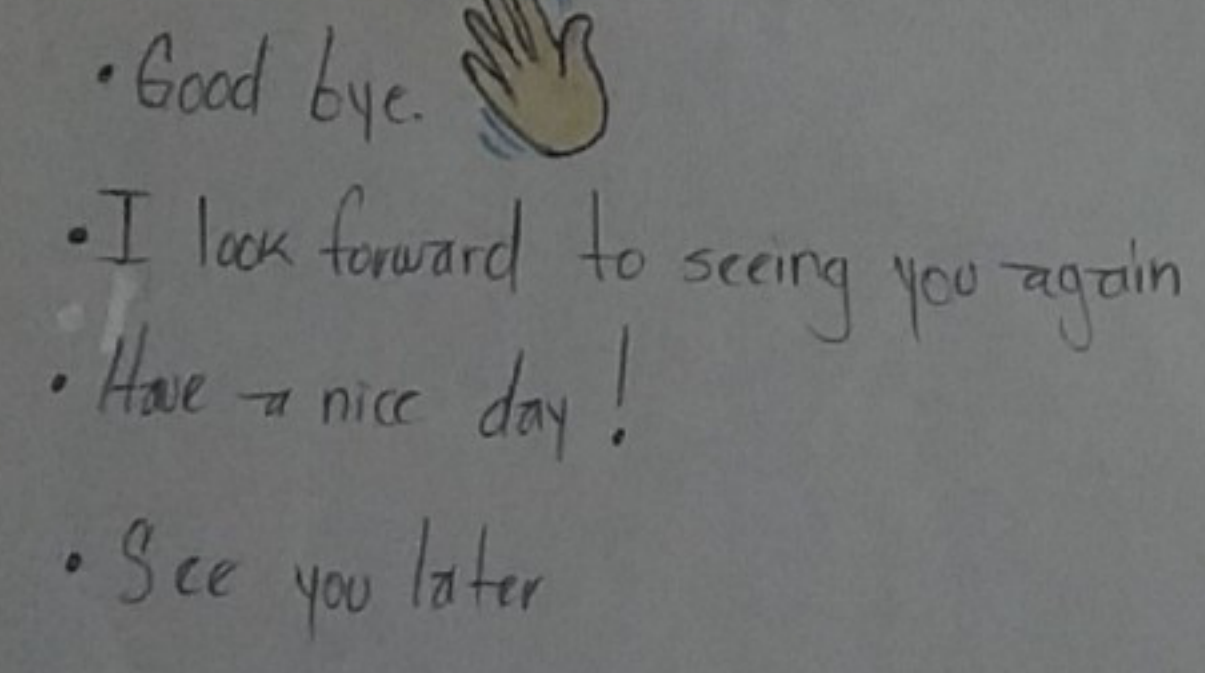 • Good bye.
• I look forward to seeing you again
• Have a nice day !
• See you later